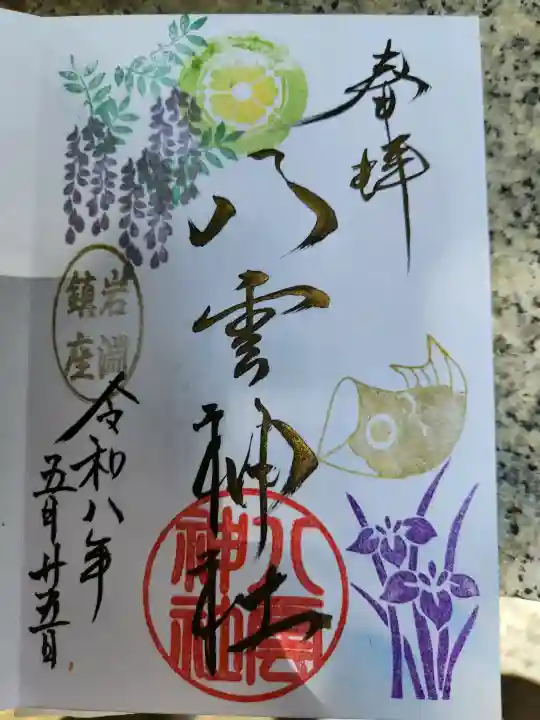 奉拝
八雲神社
八雲
神社
岩淵
鎮座
令和八年
五月廿五日